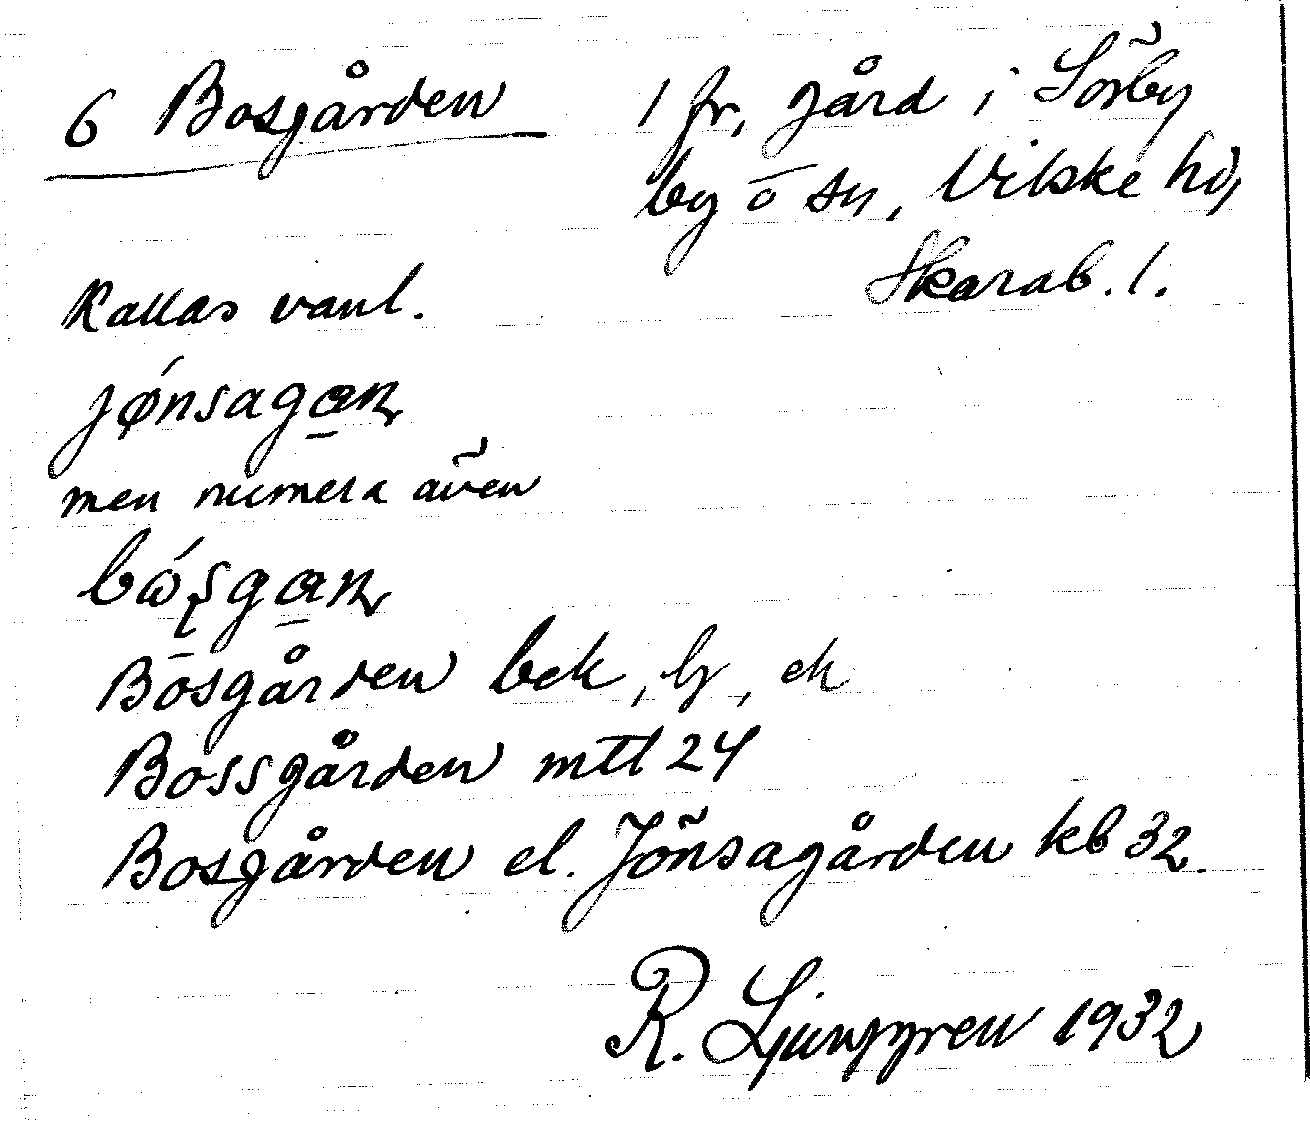 6 Bosgården
1 fr. gård i Sörby
by o sn, Vilske hd,
Skarab. l.
Kallas vanl.
jǿnsagan
men numera även
Bosgården bek, lj, ek
Bossgården mtl 24
Bosgården el. Jönsagården kb 32.
R. Ljunggren 1932